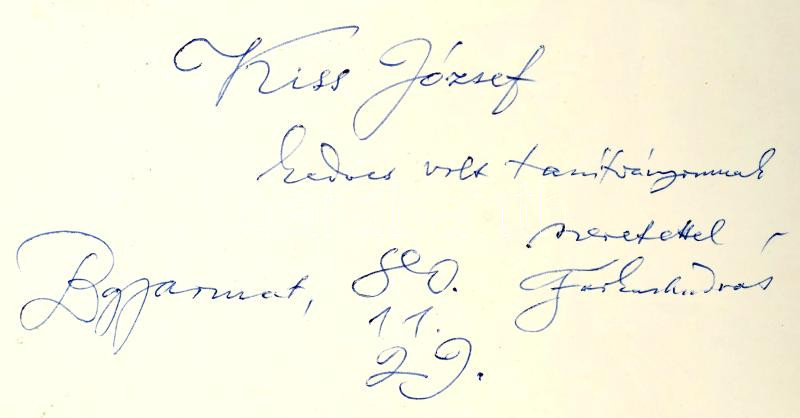 Kiss József
kedves volt tanítványomnak
szeretettel -
Bgyarmat, 80. Farkas András
11.
29.